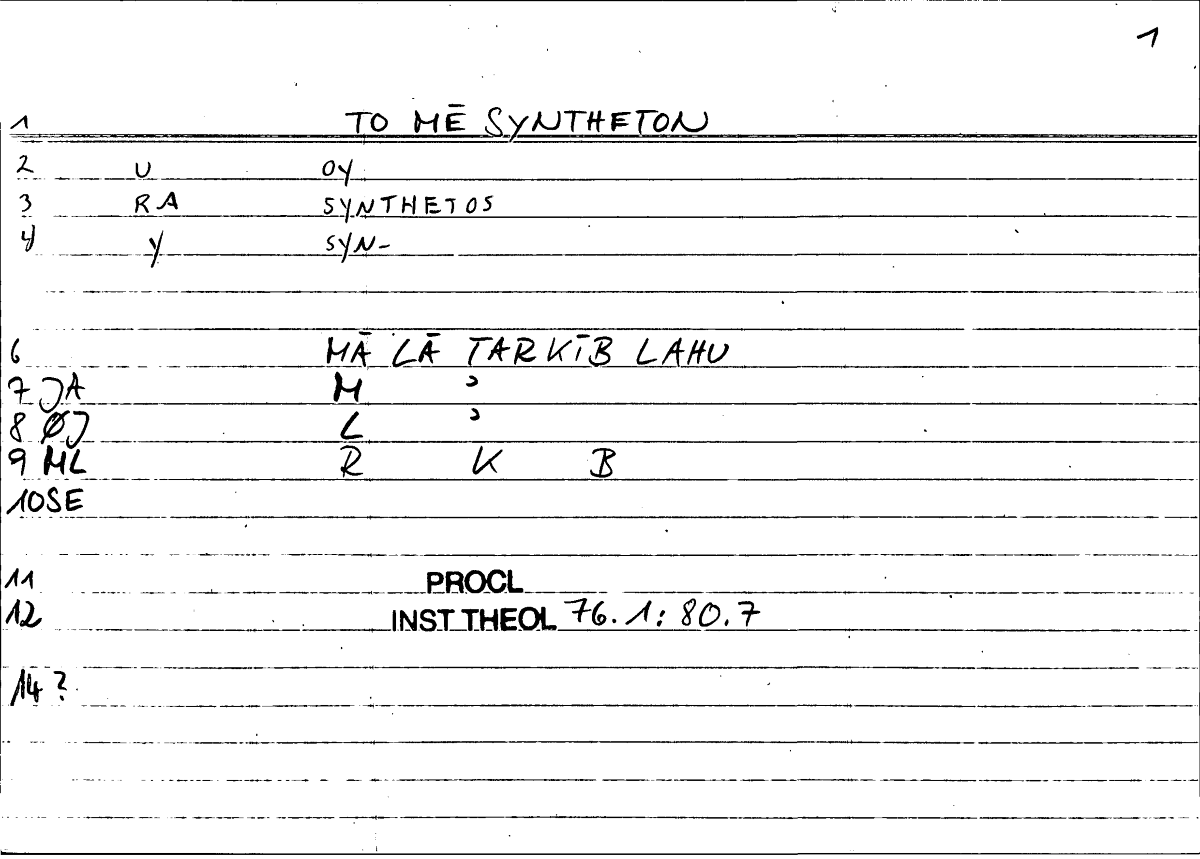 1
1 TO MĒ SYNTHETON
2 U OY
3 RA SYNTHETOS
4 Y SYN-
6 MĀ LĀ TARKĪB LAHU
7 JA M ʾ
8 ØJ L ʾ
9 ML R K B
10 SE
11 PROCL
12 INST THEOL 76.1: 80.7
14 ?